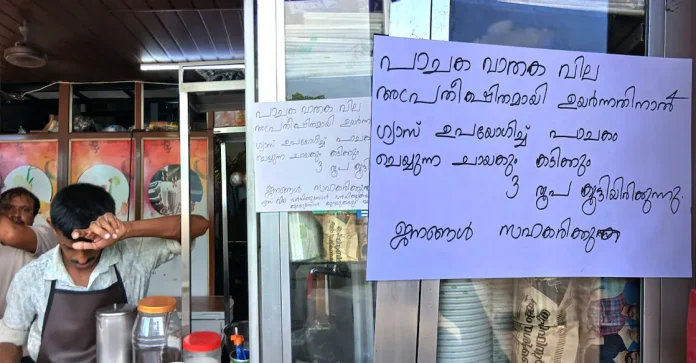 പാചക വാതക വില
അപ്രതീക്ഷിതമായി ഉയർന്നതിനാൽ
ഗ്യാസ് ഉപയോഗിച്ച് പാചകം
ചെയ്യുന്ന ചായക്കും കടിക്കും
3 രൂപ കൂട്ടിയിരിക്കുന്നു.
ജനങ്ങൾ സഹകരിക്കുക
പാചക വാതക വില
അപ്രതീക്ഷിതമായി ഉയർന്ന
ഗ്യാസ് ഉപയോഗിച്ച് പാചക
ചെയ്യുന്ന ചായക്കും കടിക്കും
3 രൂപ കൂട്ടി
ജനങ്ങൾ സഹകരിക്കു